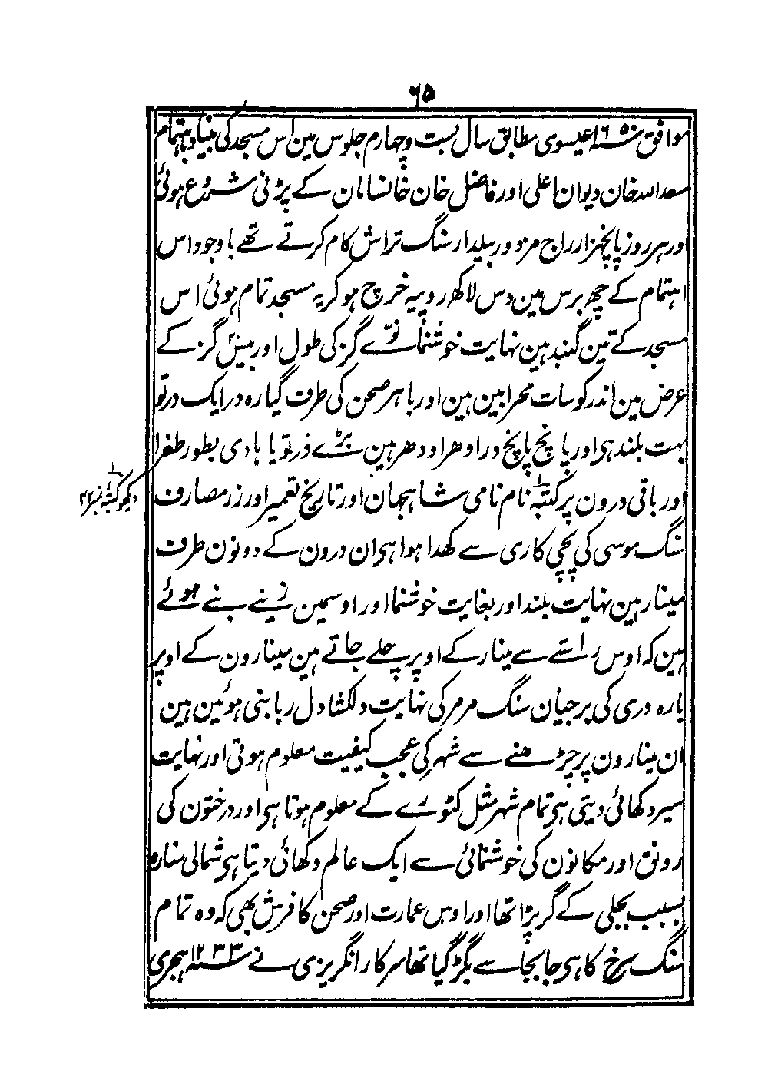 ۶۵
موافق سنہ ۱۶۵۰ عیسوی مطابق سال بست و چہارم جلوس مین اس مسجد کی بنیاد باہتمام
سعد اللہ خان دیوان اعلی اور فاضل خان خانسامان کے پڑنی شروع ہوئی
اور ہر روز پانچہزار راج مزدور بیلدار سنگ تراش کام کرتے تھے باوجود اس
اہتمام کے چھہ برس مین دس لاکھ روپیہ خرچ ہو کر یہ مسجد تمام ہوئی اس
مسجد کے تین گنبد ہین نہایت خوشنما نوے گز کی طول اور بیس گز کے
عرض مین اندر کو سات محرابین ہین اور باہر صحن کی طرف گیارہ در ایک در تو
بہت بلند ہی اور پانچ پانچ در اودھر اودھر ہین بڑے در تو یا ہادی بطور طغرا
اور باقی درون پر کتبہ نام نامی شاہجہان اور تاریخ تعمیر اور زر مصارف
دیکھو کتبہ نمبر
سنگ موسی کی پچی کاری سے کھدا ہوا ہی ان درون کے دونون طرف
مینار ہین نہایت بلند اور بغایت خوشنما اور اوسمین زینے بنے ہوئے
ہین کہ اوس راستے سے مینار کے اوپر چلے جاتے ہین مینارون کے اوپر
بارہ دری کی برجیان سنگ مرمر کی نہایت دلکشا دل ربا بنی ہوئین ہین
ان مینارون پر چڑھنے سے شہر کی عجب کیفیت معلوم ہوتی اور نہایت
سیر دکھائی دیتی ہی تمام شہر مثل کٹورے کے معلوم ہوتا ہی اور درختون کی
رونق اور مکانون کی خوشنمائی سے ایک عالم دکھائی دیتا ہی شمالی منارہ
بسبب بجلی کے گر پڑا تھا اور اوس عمارت اور صحن کا فرش بھی کہ وہ تمام
سنگ سرخ کا ہی جا بجا سے بگڑ گیا تھا سرکار انگریزی نے سنہ ۱۲۳۳ ہجری